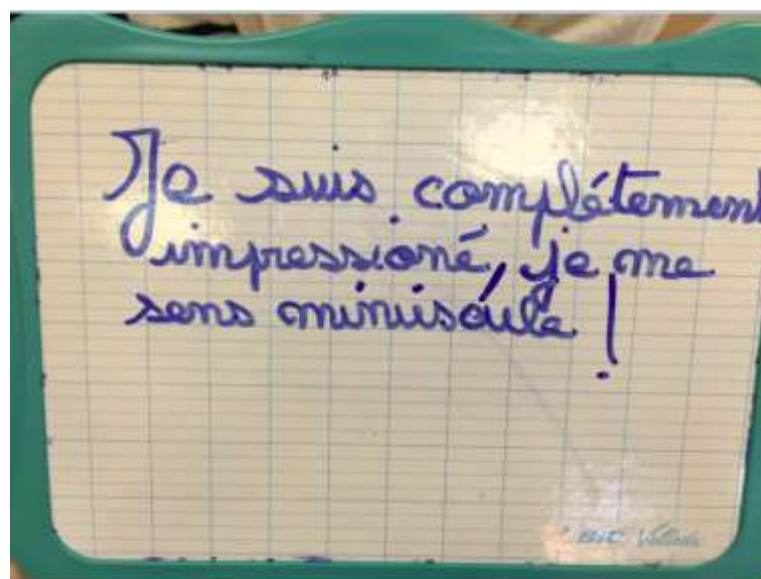 Je suis complétement
impressioné, je me
sens minuscule !
BIC Velleda